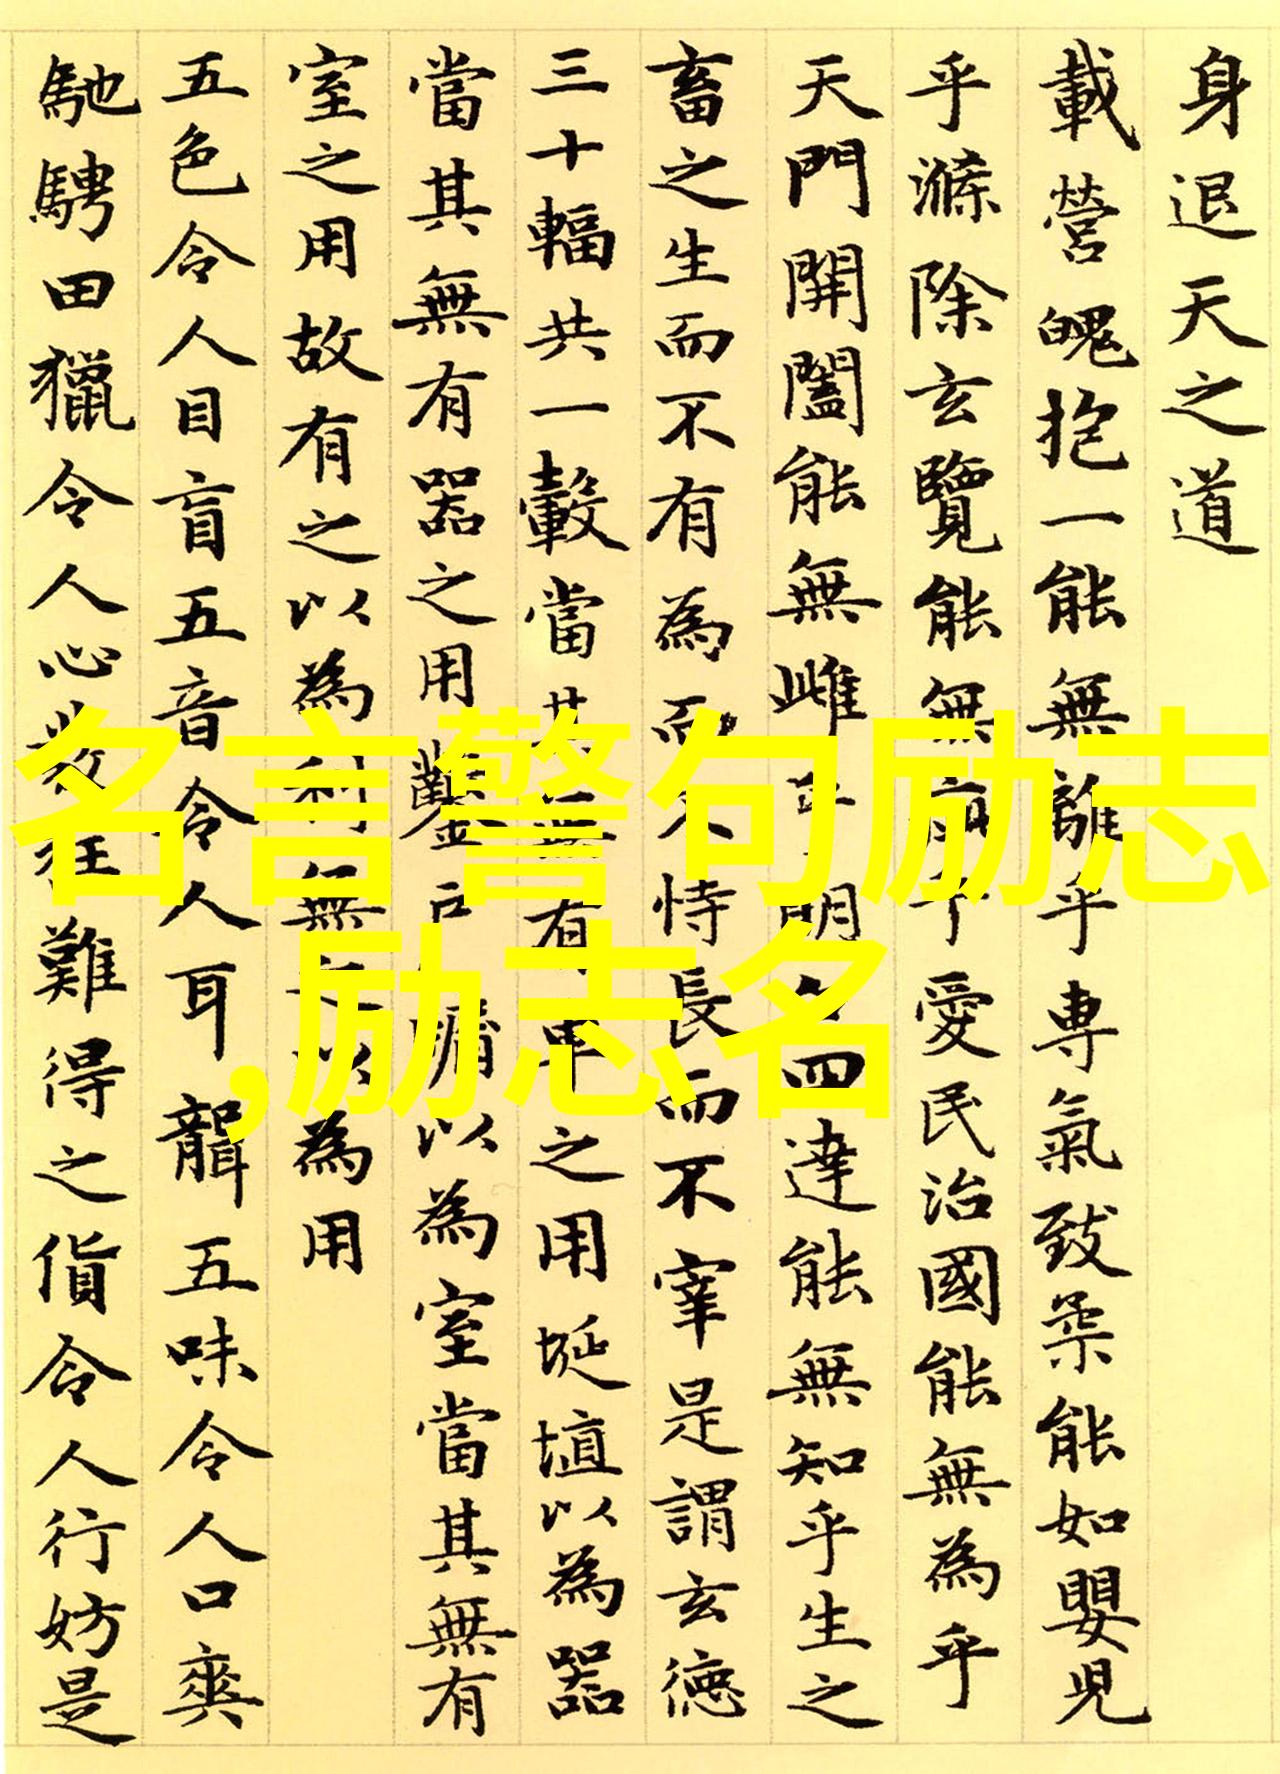 身退天之道
載營魄抱一能無離乎專氣致柔能如嬰兒
乎滌除玄覽能無疵乎愛民治國能無為乎
天門開闔能無雌乎明白四達能無知乎生之
畜之生而不有為而不恃長而不宰是謂玄德
三十輻共一轂當其無有車之用埏埴以為器
當其無有器之用鑿戶牖以為室當其無有
室之用故有之以為利無之以為用
五色令人目盲五音令人耳聾五味令人口爽
馳騁田獵令人心發狂難得之貨令人行妨是
名言警句励志
,励志名